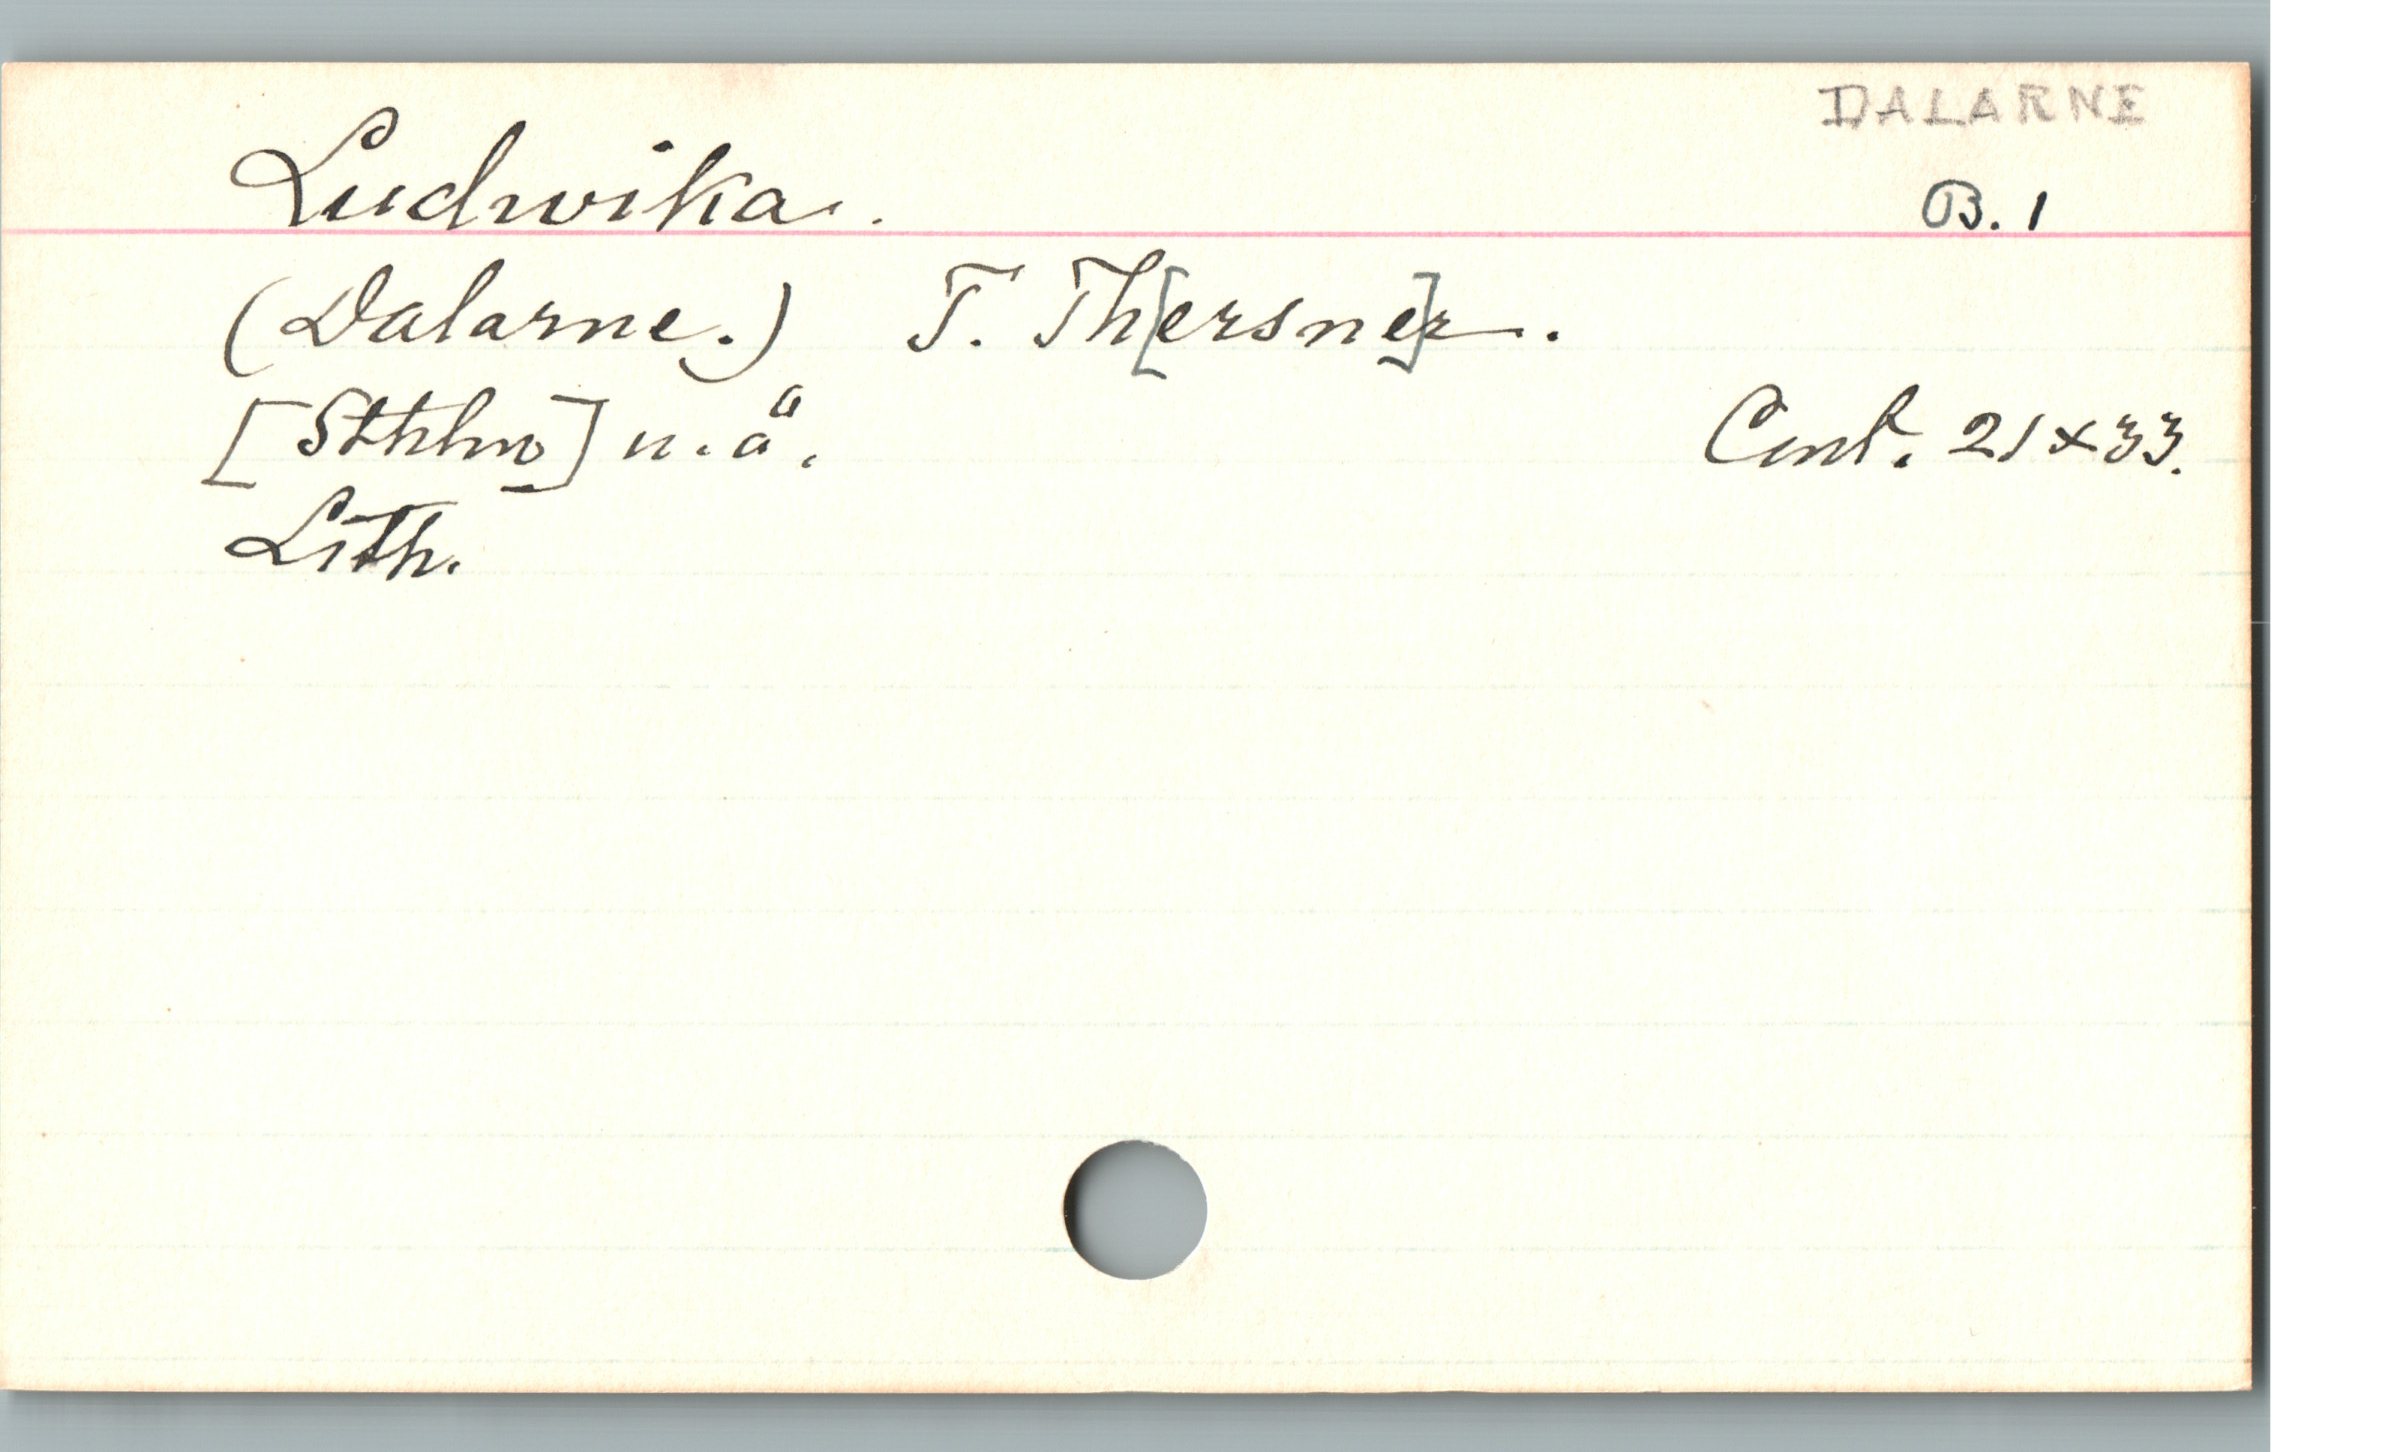 DALARNE
Ludwika.
B. 1
(Dalarne.) T. Th[ersne]r.
[Sthlm] u. ä. Cent. 21×33.
Lith.